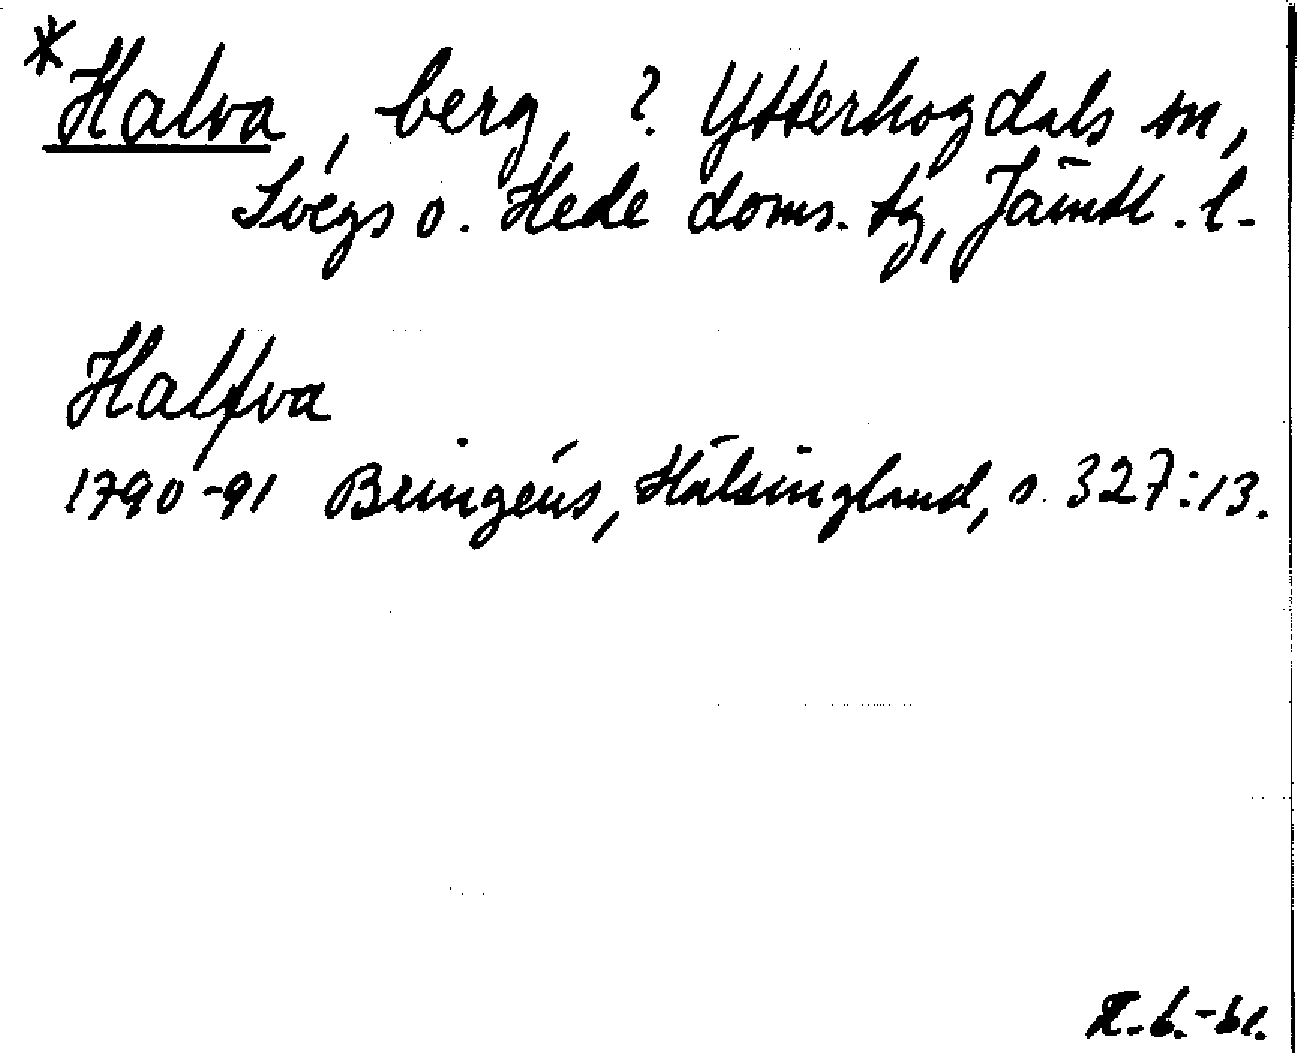 *Halva, berg, ? Ytterhogdals sn,
Svegs o. Hede doms. tg, Jämtl. l.
Halfva
1790-91 Bringéus, Hälsingland, s. 327:13.